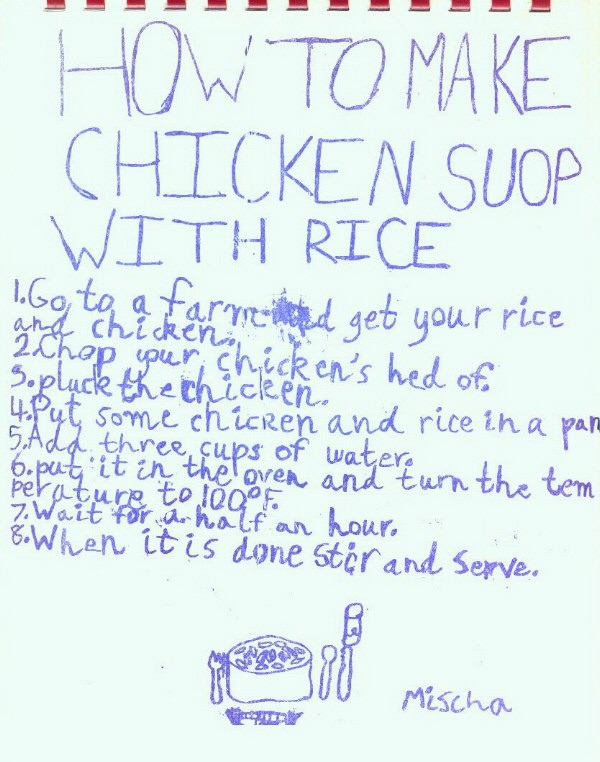 HOW TO MAKE
CHICKEN SUOP
WITH RICE
1. Go to a farm and get your rice
and chicken.
2. Chop your chicken's hed of.
3. pluck the chicken.
4. Put some chicken and rice in a pan
5. Add three cups of water.
6. put it in the oven and turn the tem
perature to 100°F.
7. Wait for a half an hour.
8. When it is done stir and serve.
Mischa